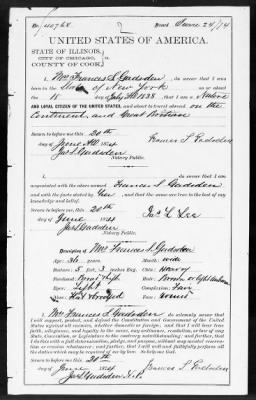 2
UNITED STATES OF AMERICA.
STATE OF ILLINOIS,
CITY OF CHICAGO,
COUNTY OF COOK,
I, Mrs Frances S. Gadsden, do swear that I was born
in the State of New York on or about
the July 1838, that I am a Native
AND LOYAL CITIZEN OF THE UNITED STATES, and about to travel abroad, on the
Continent, and Great Britain
Sworn to before me this 20th
day of June 1874
Notary Public.
I, do swear that I am
acquainted with the above named Frances S. Gadsden
and with the facts stated by her, and that the same are true to the best of my
knowledge and belief.
Sworn to before me this 20th
day of June 1874
Notary Public.
Description of Mrs Frances S. Gadsden
Age: 36 years
Mouth: wide
Stature: 5 feet, 3 inches Eng.
Chin: Heavy
Forehead:
Hair:
Eyes: Light
Complexion: Fair
Nose:
Face:
I, Mrs Frances S. Gadsden do solemnly swear that I
will support, protect, and defend the Constitution and Government of the
United States against all enemies, whether domestic or foreign; and that I will bear true
faith, allegiance, and loyalty to the same, any ordinance, resolution, or law of
any State, Convention, or Legislature to the contrary notwithstanding; and further, that
I do this with a full determination, pledge, and purpose, without any mental reservation
or evasion whatsoever; and further, that I will well and faithfully perform all
the duties which may be required of me by law.
Sworn to before me this 20th
day of June 1874